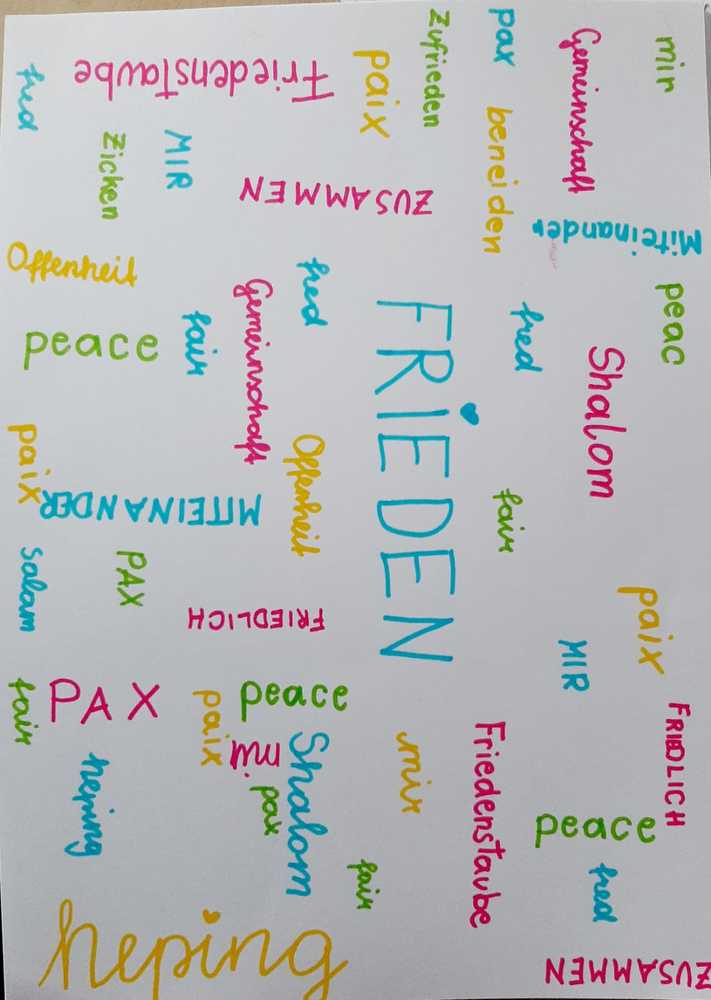 mir
Gemeinschaft
pax
Zufrieden
paix
Friedenstaube
fred
Zicken
MIR
ZUSAMMEN
beneiden
Miteinander
Offenheit
peace
fair
Gemeinschaft
fred
FRIEDEN
fred
peac
Shalom
paix
MITEINANDER
Offenheit
fair
salam
PAX
FRIEDLICH
paix
MIR
fair
PAX
paix
peace
mir
Shalom
pax
heping
mir
Friedenstaube
FRIEDLICH
peace
fair
fred
heping
ZUSAMMEN